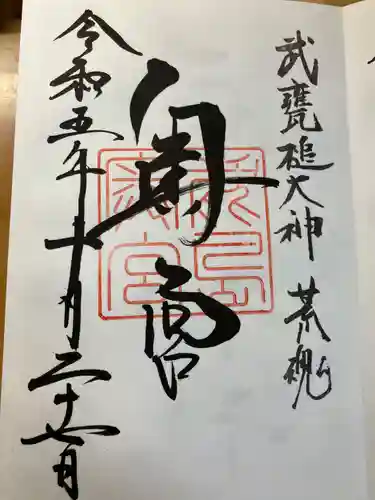 武甕槌大神 荒魂
奥宮
鹿島奥宮
令和五年十月二十七日